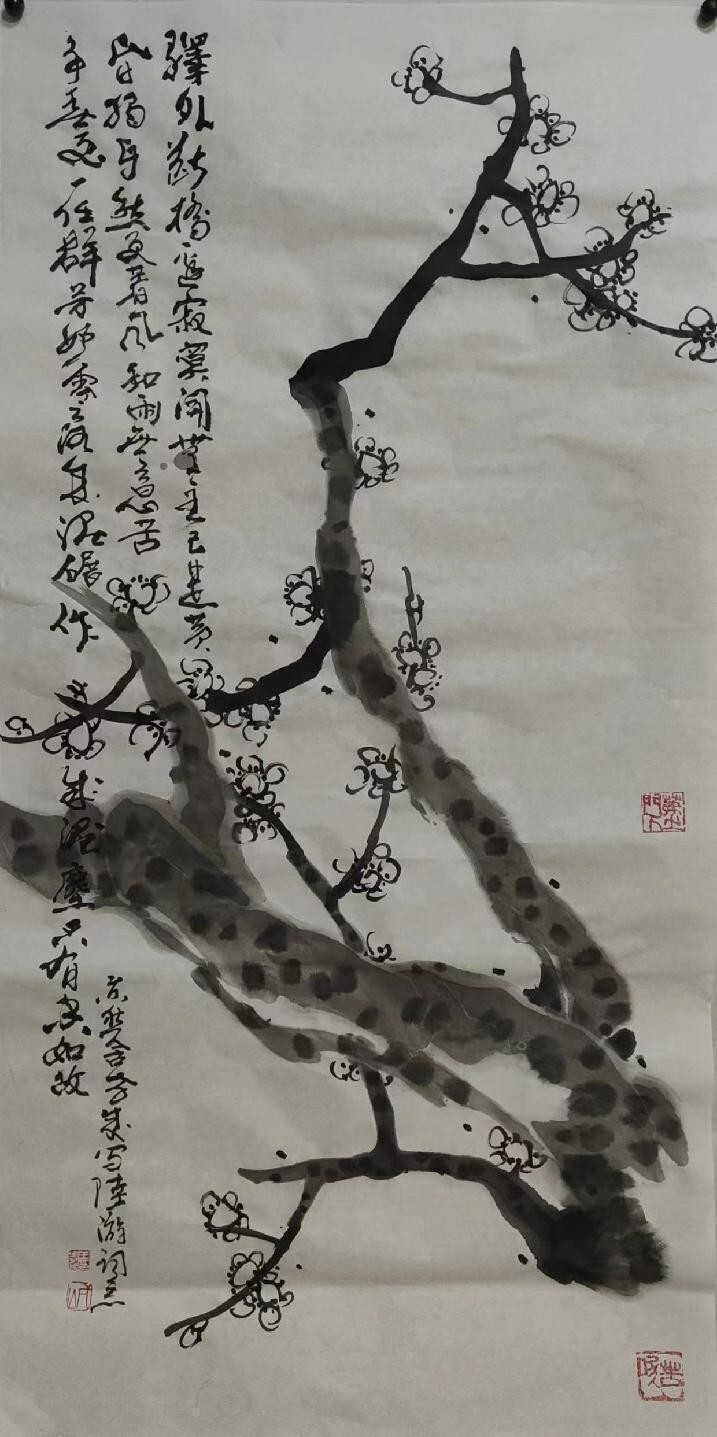 驛外斷橋邊寂寞開無主已是黄
昏獨自愁更著風和雨無意苦
争春一任群芳妒零落成泥碾作
成泥塵只有香如故
舍方成写陸游詞意
門下